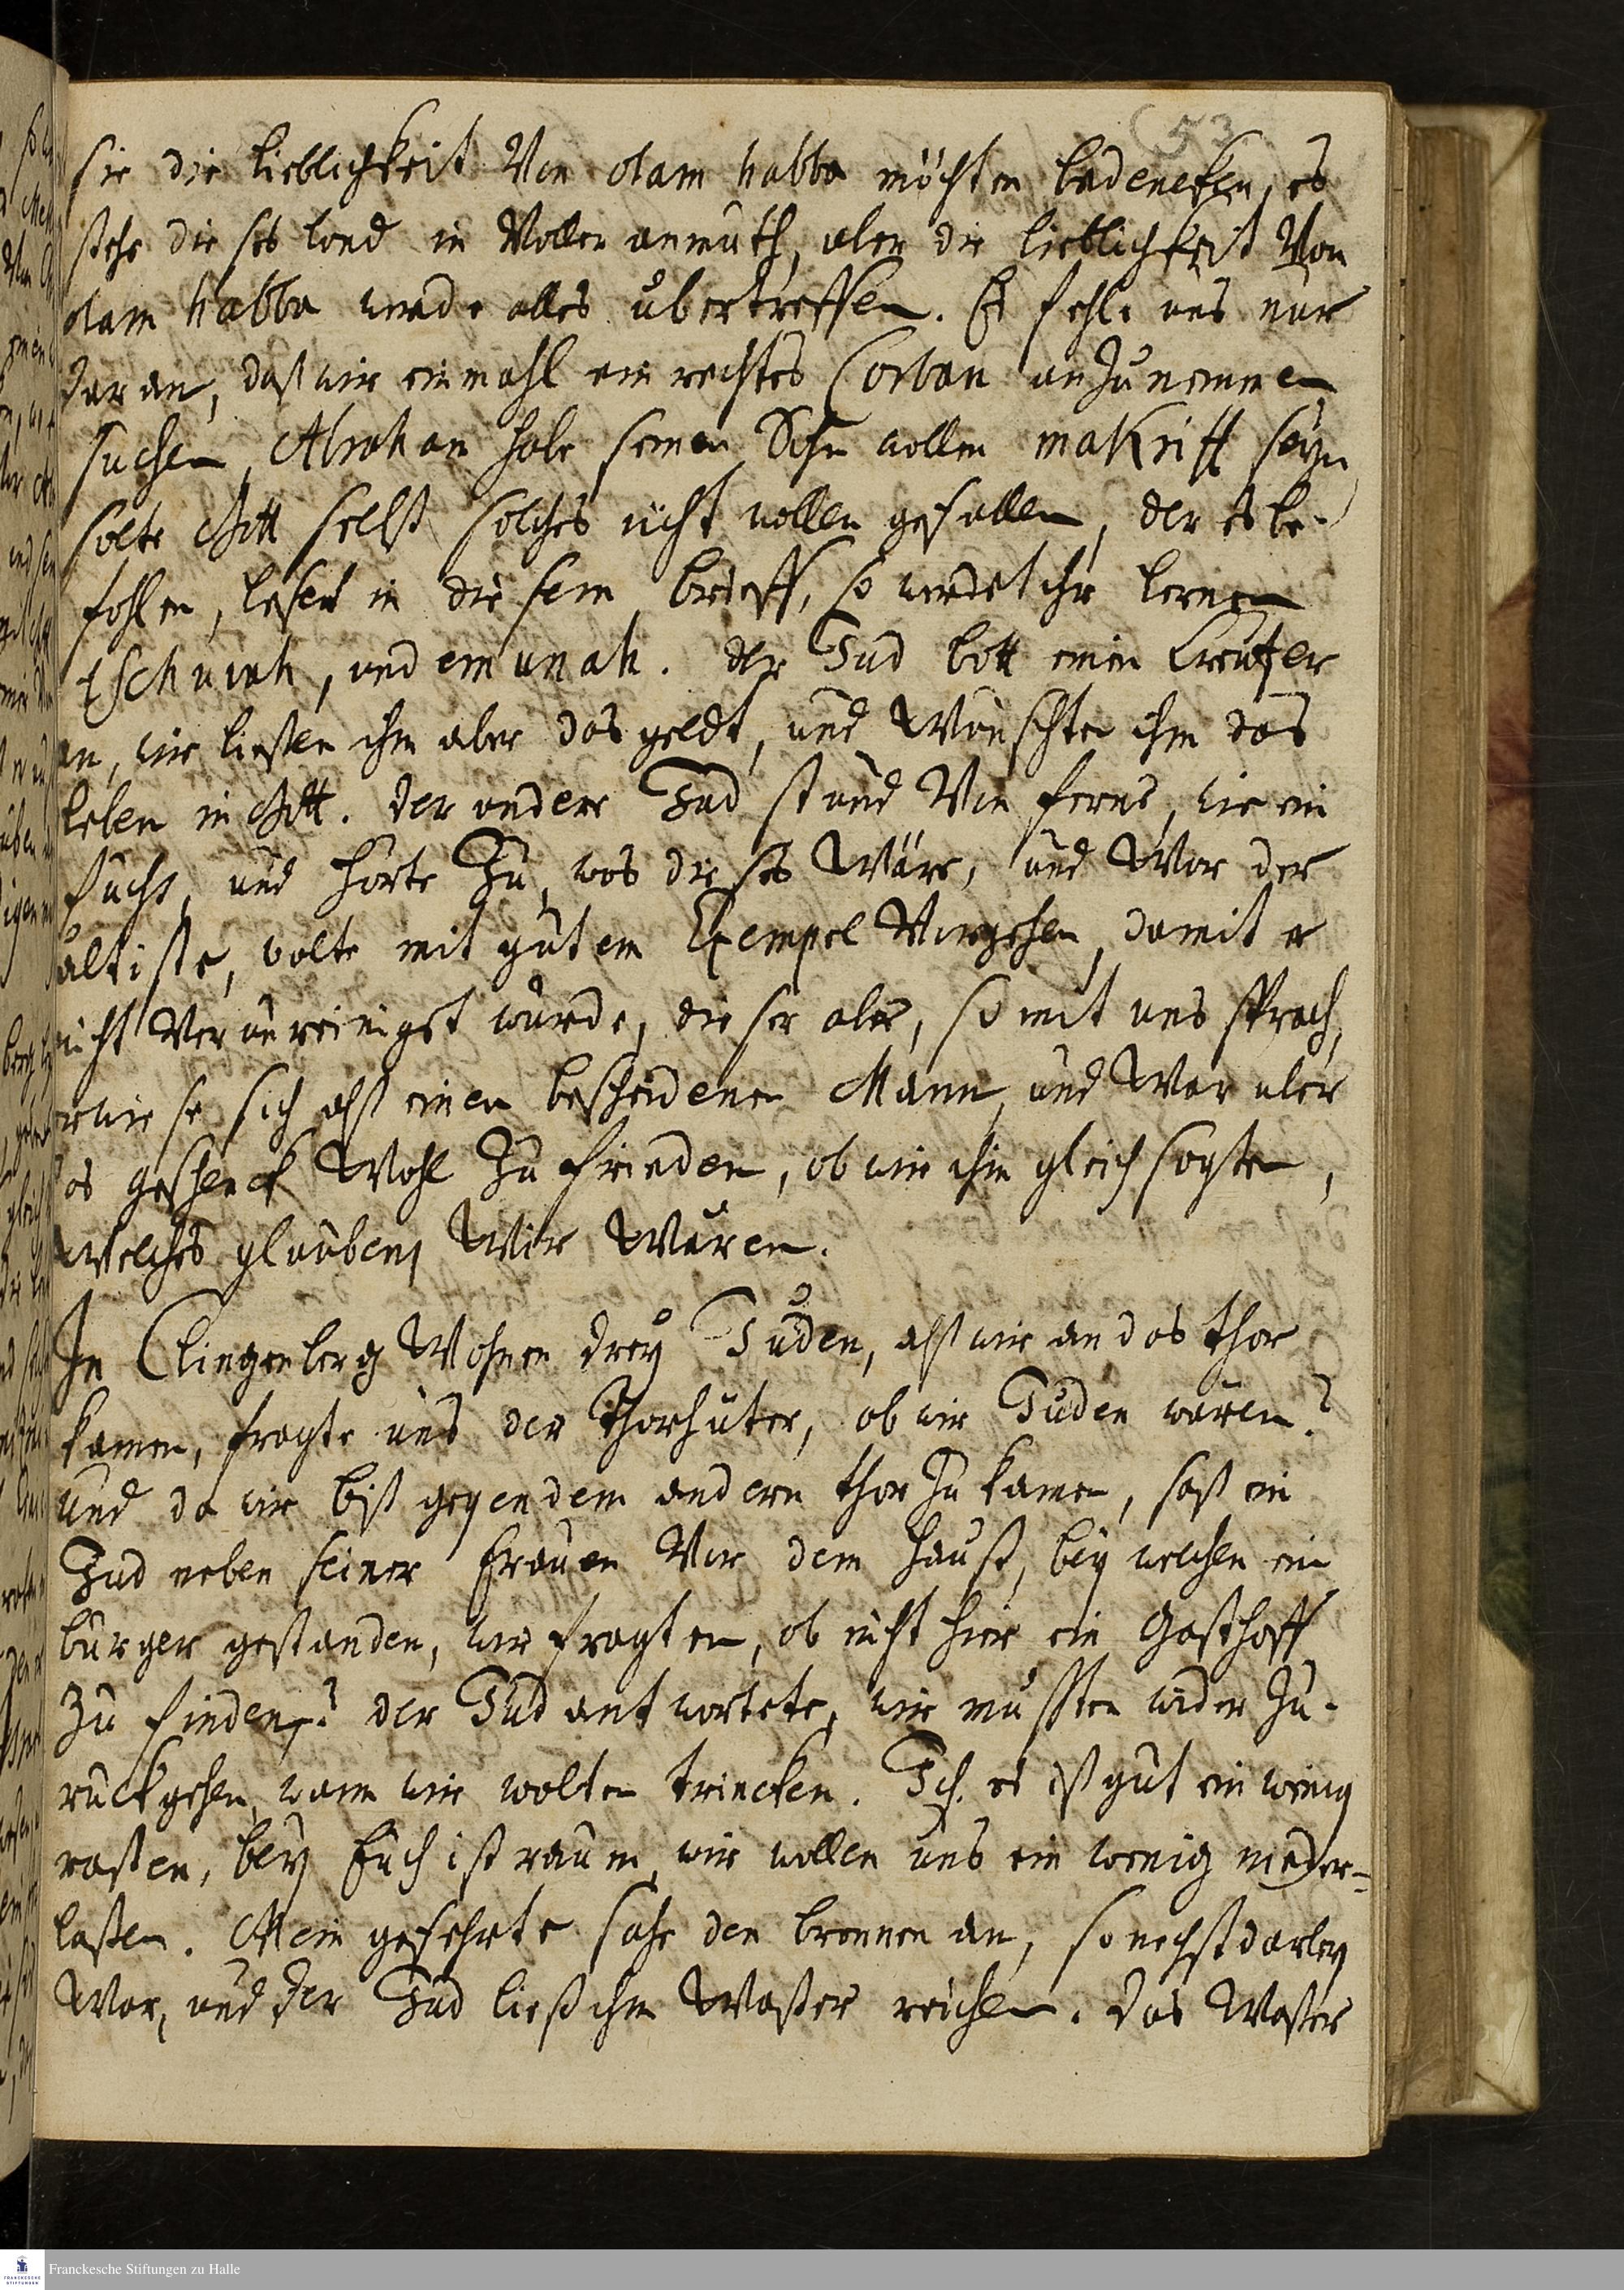 53
sie die lieblichkeit Von olam habba möchten bedencken, es
stehe dieses land in Voller anmuth, aber die lieblichkeit Von
olam habba werde alles übertreffen. Es fehle uns nur
daran, daß wir einmahl ein rechtes Corban anzunemmen
suchen, Abraham habe seinen Sohn wollen makriff seyn
solte Gott selbst solches nicht wollen gefallen, der es be-
fohlen, leset in diesem brieff, so werdet ihr lernen
tschuvah, und emunah. der Jud bott einen Creutzer
an, wir ließen ihm aber das geldt, und Wünschten ihm das
leben in Gott. der andere Jud stund Von ferne, wie ein
fuchs, und horte Zu, was dieses Wäre, und War der
ältiste, wolte mit gutem Exempel Vorgehen, damit er
nicht Verunreinigt würde, dieser aber, so mit uns sprach,
erwiese sich alß einen bescheidenen Mann, und War uber
das geschenck Wohl Zu frieden, ob wir ihm gleich sagten,
Welches glaubens Wir Wären.
In Clingenberg Wohnen drey Juden, alß wir an das thor
kamen, fragte uns der thorhüter, ob wir Juden wären?
Und da wir biß gegen dem andern thor Zu kamen, saß ein
Jud neben seiner frauen Vor dem hauß, bey welchen ein
bürger gestanden, wir fragten, ob nicht hier ein Gasthoff
Zu finden? der Jud antwortete, wir müssten wider Zu-
rückgehen, wann wir wolten trincken. Ich. es ist gut ein wenig
rasten, bey Euch ist raum, wir wollen uns ein wenig nieder-
laßen. Mein gefehrte sahe den bronnen an, so nechst darbey
War, und der Jud ließ ihm Waßer reichen. das Waßer
Franckesche Stiftungen zu Halle